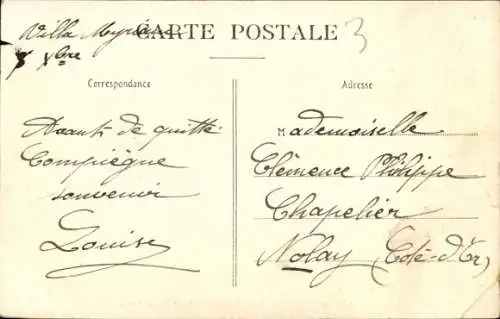 Villa
CARTE POSTALE
3
Xbre
Correspondance
Adresse
Avant de quitter
Compiègne
souvenir
Louise
Mademoiselle
Clémence Philippe
Chapelier
Nolay (Côte-d'Or)